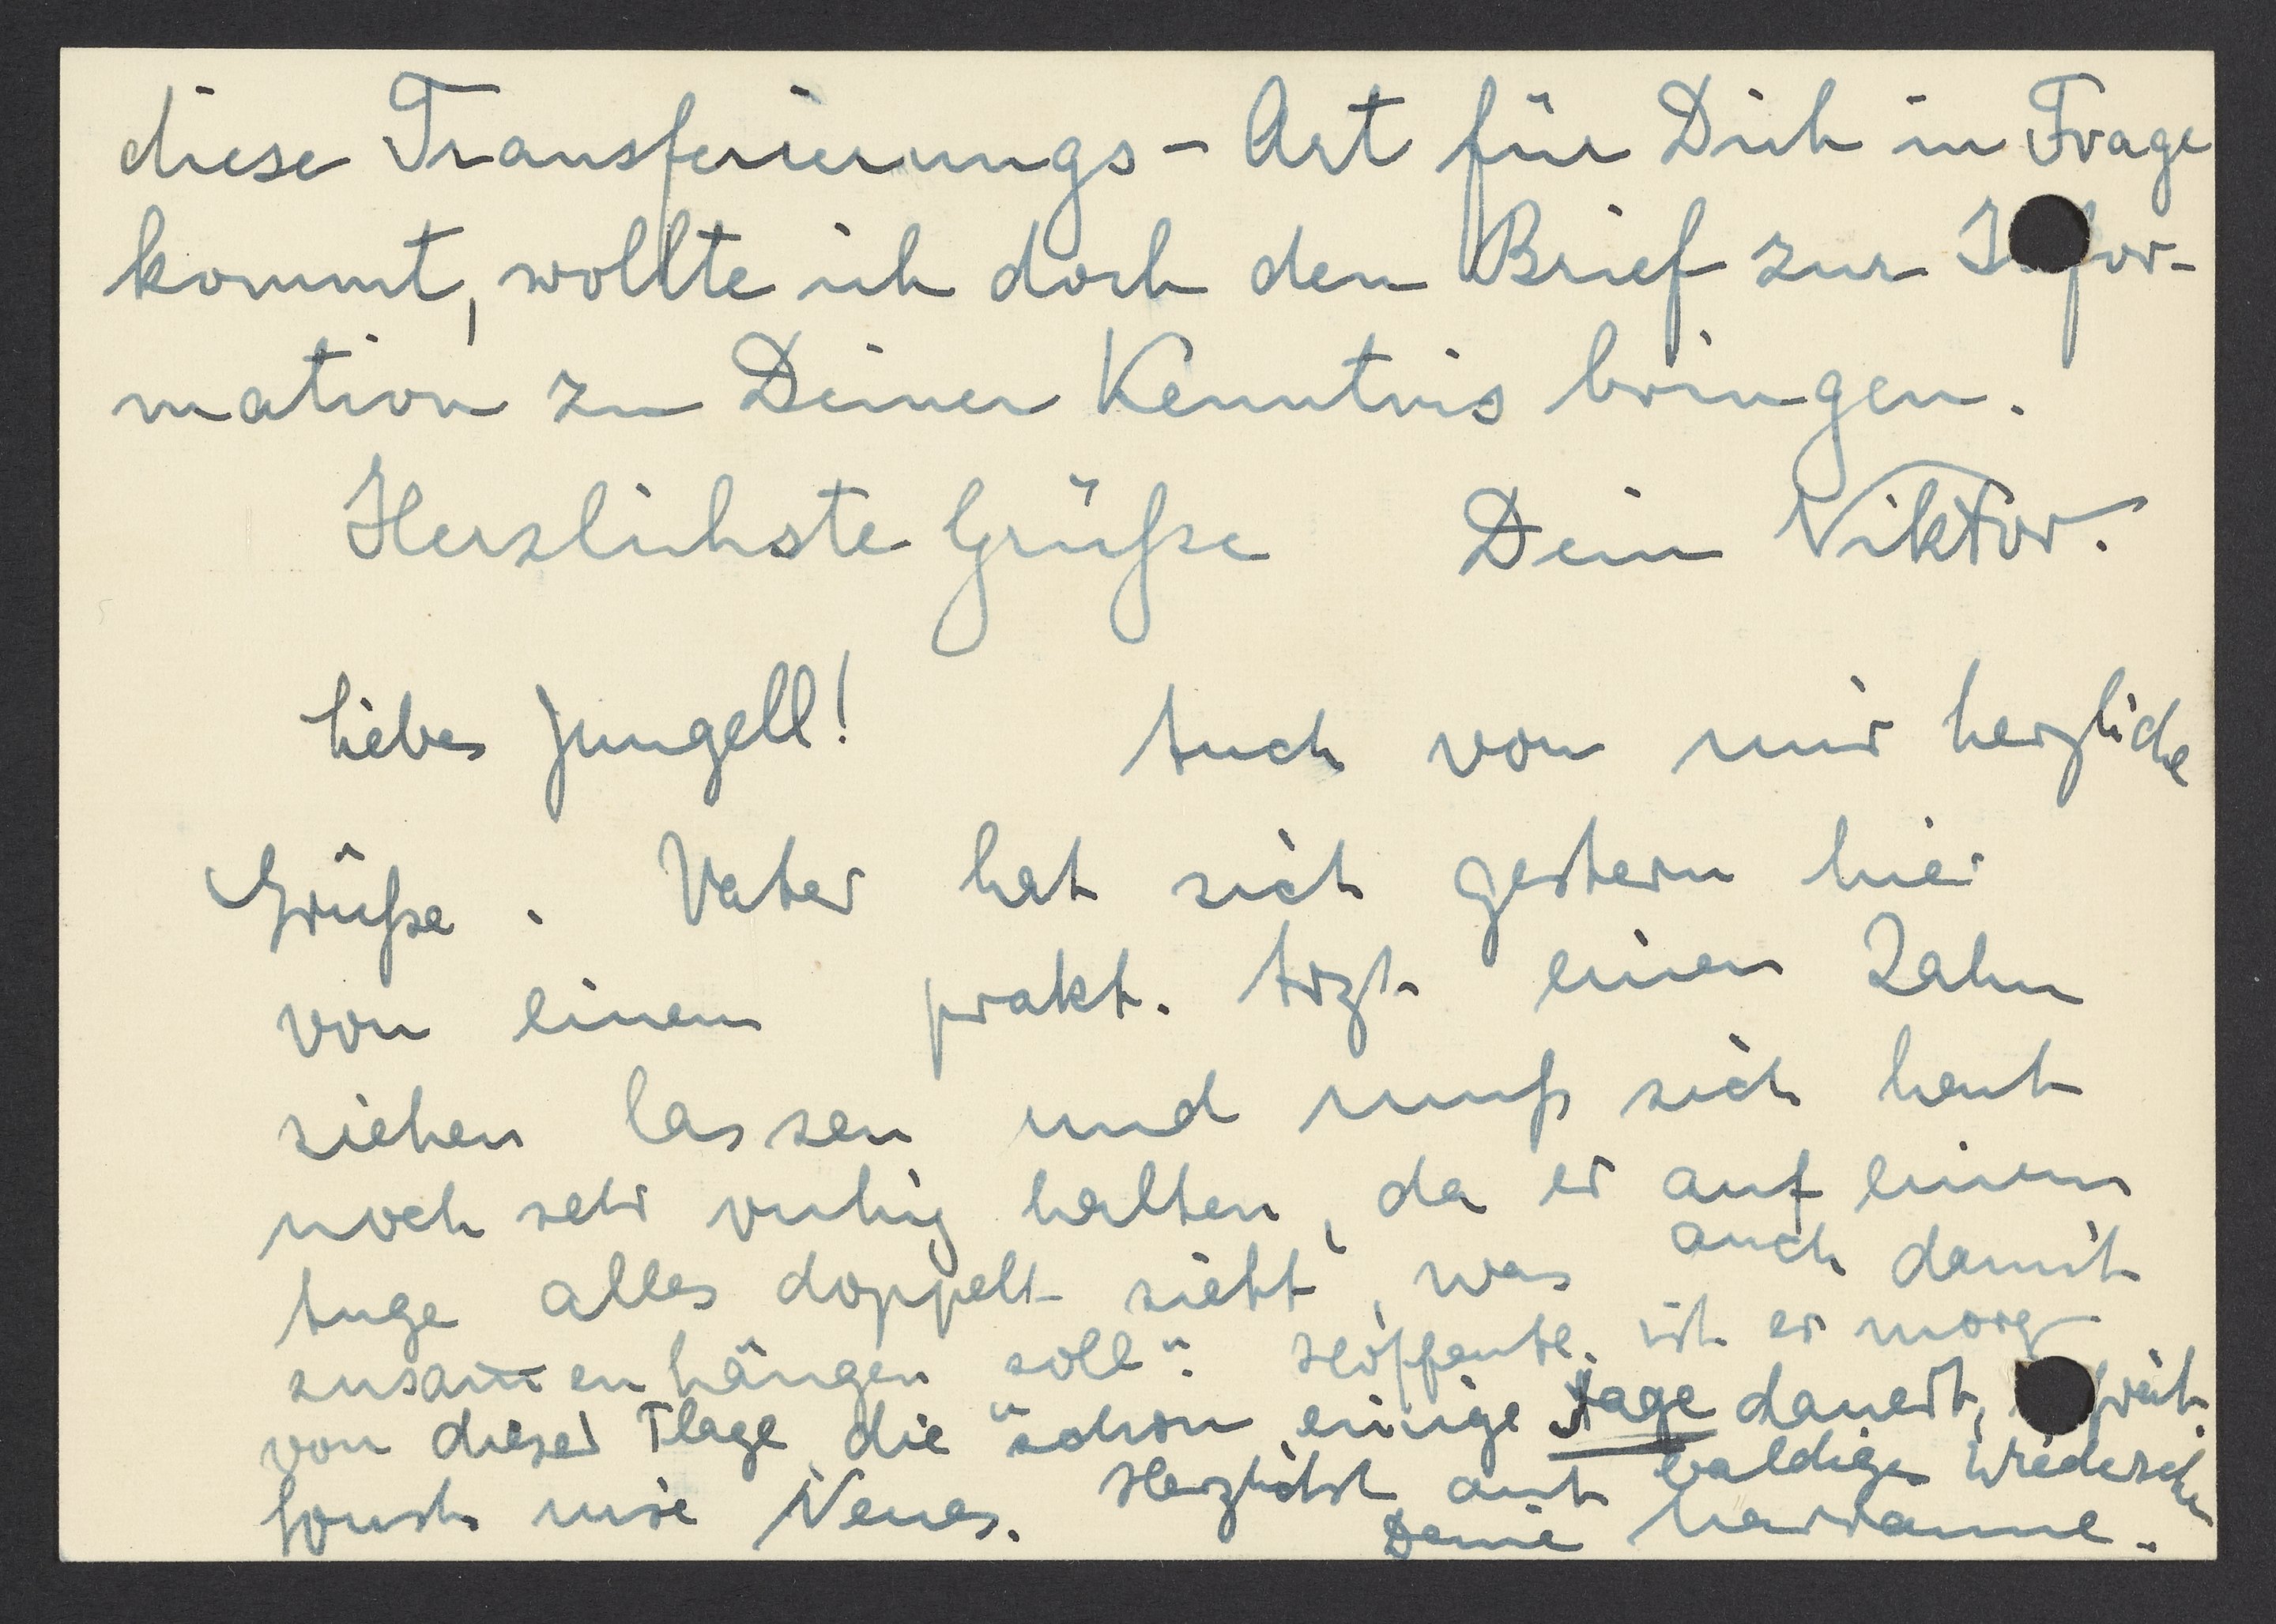 diese Transferierungs-Art für Dich in Frage
kommt, wollte ich doch den Brief zur Infor-
mation zu Deiner Kenntnis bringen.
Herzlichste Grüße Dein Viktor.
Liebes Jungell! Auch von mir herzliche
Grüße. Vater hat sich gestern hier
von einem prakt. Arzt einen Zahn
ziehen lassen und muß sich heut
noch sehr ruhig halten, da er auf einem
Auge alles doppelt sieht, was auch damit
zusam̅enhängen soll". Hoffentl. ist er morg
von dieser Plage die "schon einige Tage dauert,
sonst nix Neues. Herzlichst auf baldiges Wiedersehn
Deine Marianne.